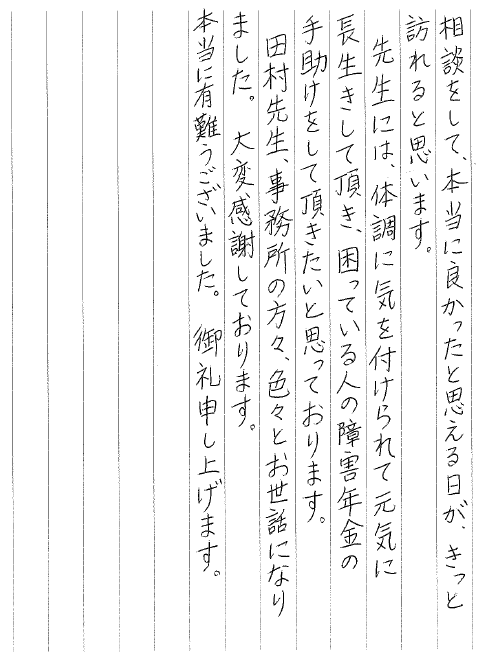 相談をして、本当に良かったと思える日が、きっと
訪れると思います。
先生には、体調に気を付けられて元気に
長生きして頂き、困っている人の障害年金の
手助けをして頂きたいと思っております。
田村先生、事務所の方々、色々とお世話になり
ました。 大変感謝しております。
本当に有難うございました。 御礼申し上げます。